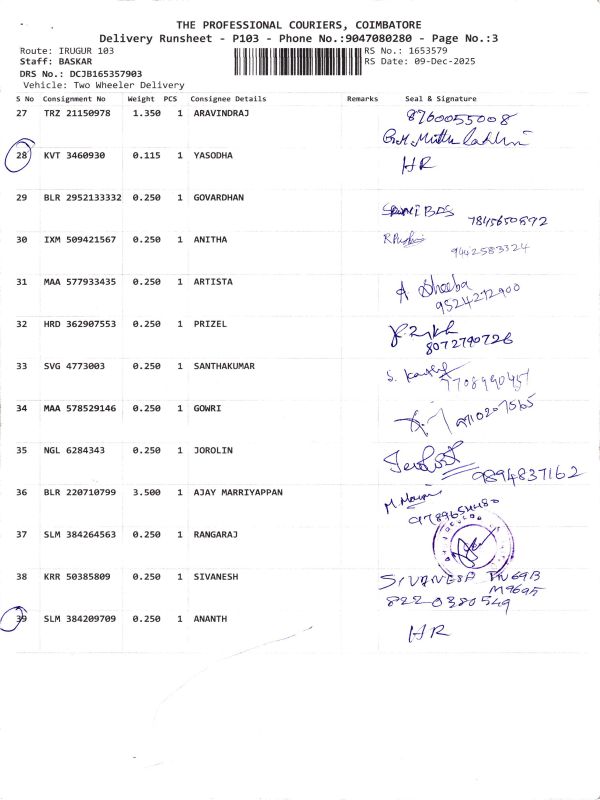 THE PROFESSIONAL COURIERS, COIMBATORE
Delivery Runsheet - P103 - Phone No.:9047080280 - Page No.:3
Route: IRUGUR 103 RS No.: 1653579
Staff: BASKAR RS Date: 09-Dec-2025
DRS No.: DCJB165357903
Vehicle: Two Wheeler Delivery
S No Consignment No Weight PCS Consignee Details Remarks Seal & Signature
27 TRZ 21150978 1.350 1 ARAVINDRAJ 8760055008
28 KVT 3460930 0.115 1 YASODHA HR
29 BLR 2952133332 0.250 1 GOVARDHAN
7845650892
30 IXM 509421567 0.250 1 ANITHA
9442583324
31 MAA 577933435 0.250 1 ARTISTA A Sheeba
9524272900
32 HRD 362907553 0.250 1 PRIZEL
8072790726
33 SVG 4773003 0.250 1 SANTHAKUMAR
7708990457
34 MAA 578529146 0.250 1 GOWRI
35 NGL 6284343 0.250 1 JOROLIN
9894837162
36 BLR 220710799 3.500 1 AJAY MARRIYAPPAN
37 SLM 384264563 0.250 1 RANGARAJ
38 KRR 50385809 0.250 1 SIVANESH SIVANESH TN69B
M9695
8220380549
39 SLM 384209709 0.250 1 ANANTH HR